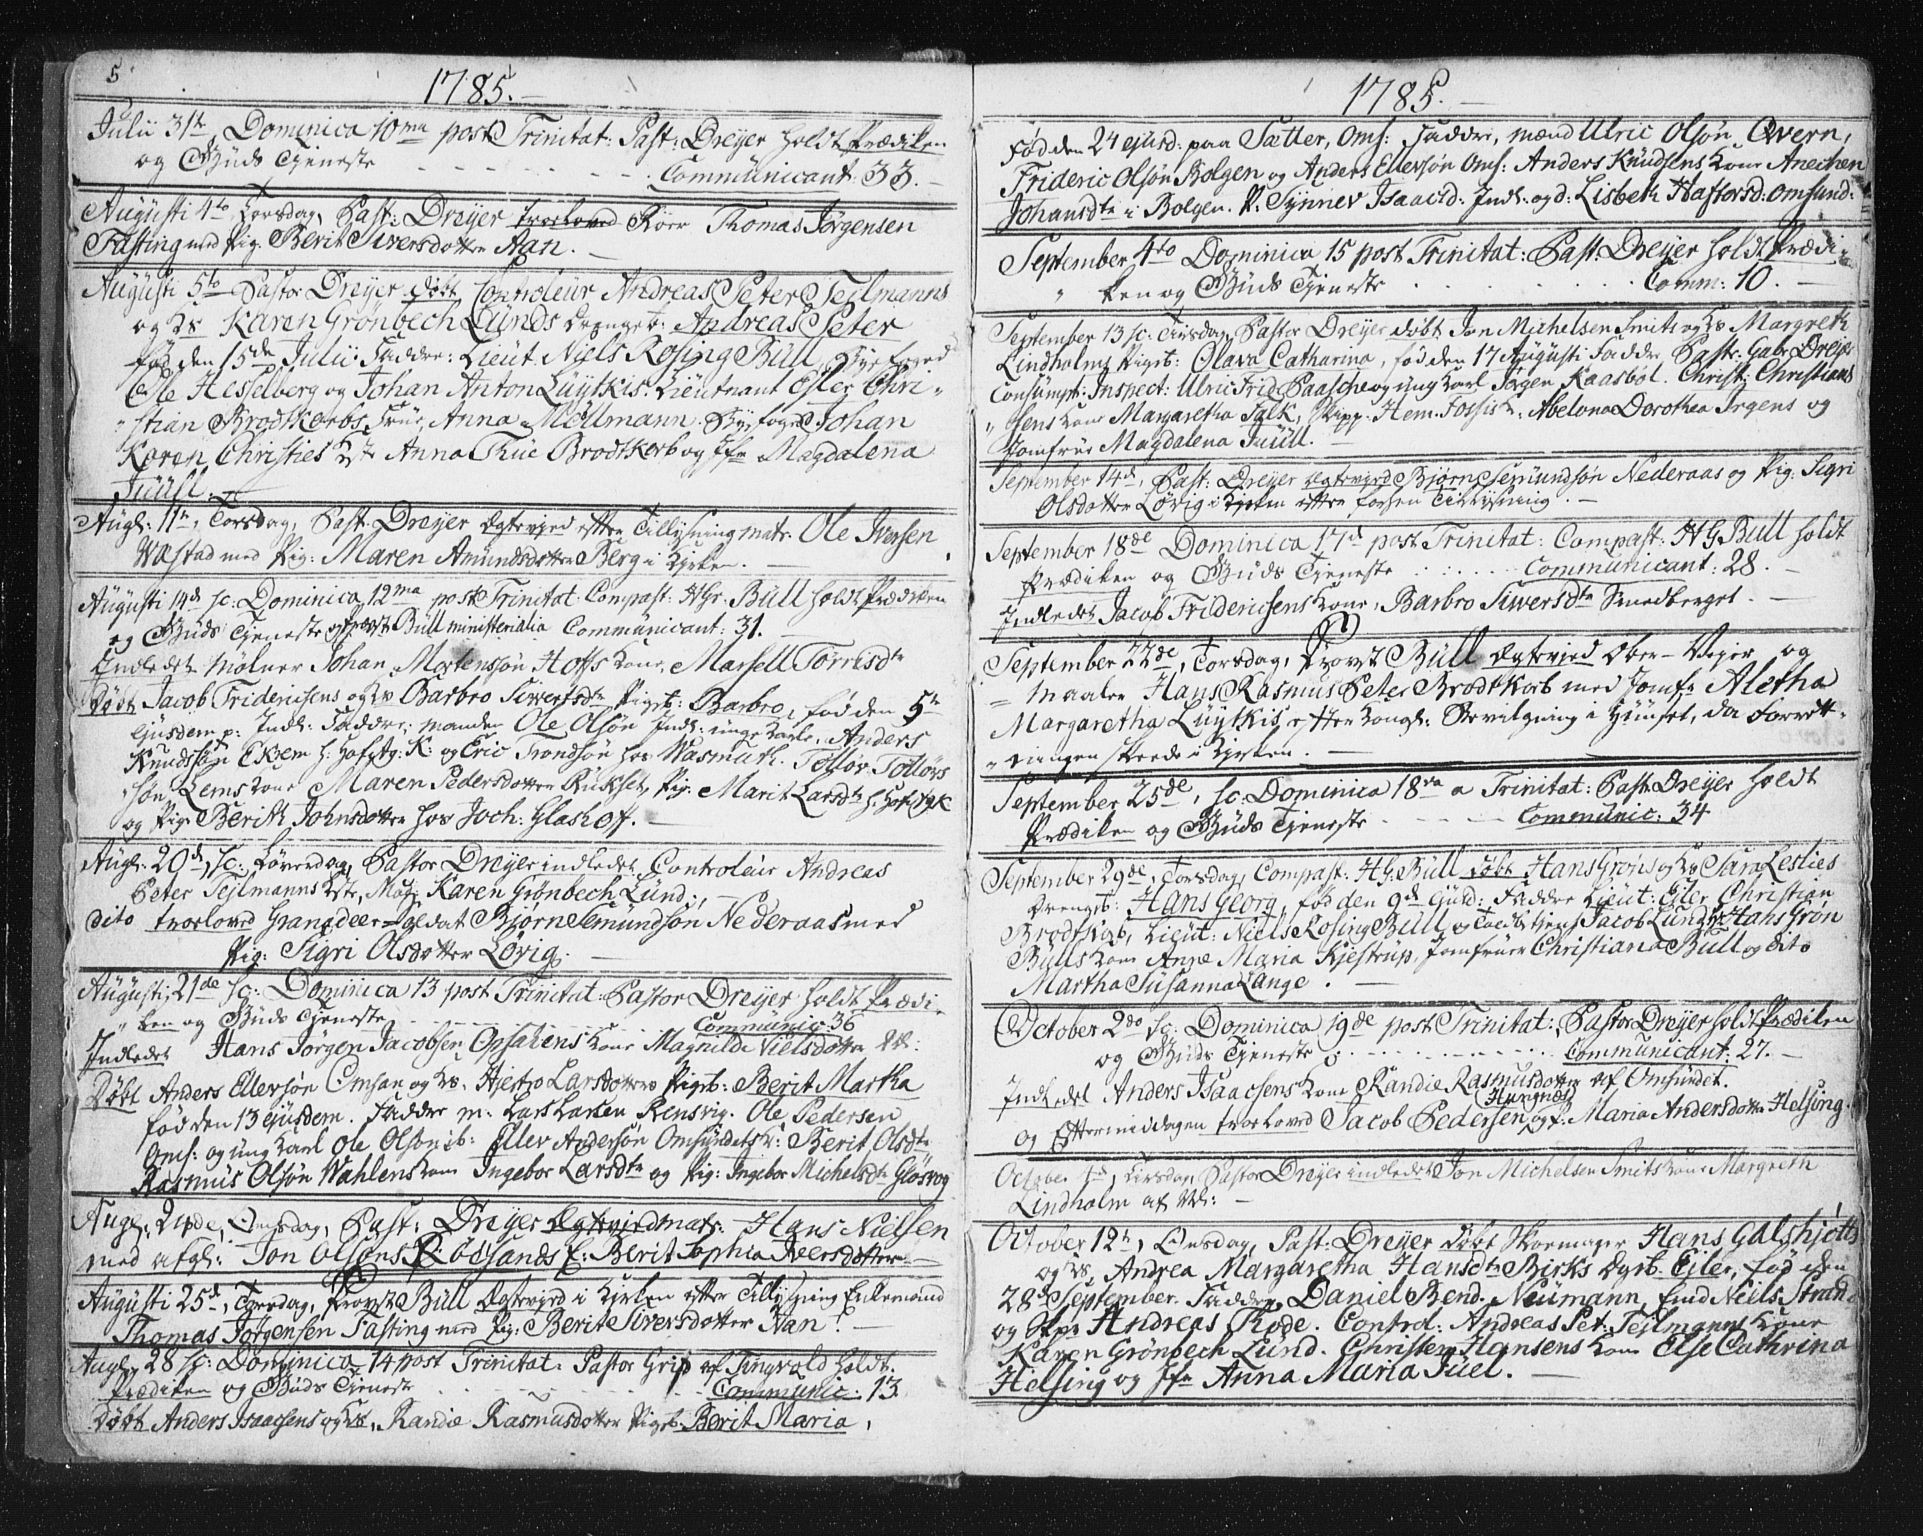 5
1785.
Julii 31te, Dominica 10ma post Trinitat: Past: Dreyer holdt Prædiken
og Guds Tjeneste - - - - - - - Communicant: 33.
Augusti 4to, Torsdag, Past: Dreyer troloved Thomas Jörgensen
Fasting med Pig. Berit Siversdotter Nan.
Augusti 5to Pastor Dreyer döbt Controleur Andreas Peter Tejlmanns
og Hs Karen Grönbech Lunds Drengeb: Andreas Peter
fød den 15de Julii: Faddere: Lieut: Niels Rosing Bull, Byefoged
Ole Hesselberg og Johan Anton Lüytkis. Lieutnant Ejler Chri=
stian Brodtkorbs Frue Anna Möllmann. Byefoged Johan
Koren Christies Kste Anna Thue Brodtkorb og Jfr Magdalena
Juüll.
Augl: 11te, Torsdag, Past: Dreyer Ægteviед efter Tillysning matr. Ole Iversen
Wæstad med Pig: Maren Amundsdotter Berg i Kirken.
Augusti 14de sc: Dominica 12ma post Trinitat: Compast: HGr. Büll holdt Prædiken
og Guds Tjeneste og Provst Büll ministerialia Communicant: 31.
Indledet Mölner Johan Mortenssön Hoffs Kone, Marsell Torrisdtr
Döbt Jacob Friderichsens og Hs Barbro Siversdtr Pigeb: Barbro, fød den 5te
Ejusdem p: Indl: Faddere: manden Ole Olsön Indl: unge Karle, Anders
Knudssön Ekrem h: Hofagt: K: og Eric Trondsön hos Wasmuth. Tollov Tollovs
sön Lerns Kone Maren Pedersdotter Rükset, Pig: Marit Larsdtr h: Hofagt K
og Pig: Berith Johnsdotter hos Joch: Glashoff.
Augl: 20de, sc: Löverdag, Pastor Dreyer indledet Controleur Andreas
Peter Tejlmanns Kste, Mad: Karen Grönbech Lund.
dito troloved Granadeer-Soldat Björn Semundsön Nederaas med
Pig: Sigri Olsdotter Lövig.
Augusti 21de sc: Dominica 13 post Trinitat: Pastor Dreyer holdt Prædi=
ken og Guds Tjeneste - - - - - Communic: 36
Indledet Hans Jörgen Jacobsen Opsahlens Kone Magnilde Nielsdotter
Döbt Anders Ellersön Omsan og Hs. Hjertro Larsdotters Pigeb: Berit Martha
fød den 13 ejusdem. Faddere m: Lars Larsen Rensvig. Ole Pedersen
Oms: og ung Karl Ole Olsön ib: Eller Andersön Omsundets K: Berit Olsdtr
Rasmus Olsön Wahlens Kone Ingebor Larsdtr og Pig: Ingebor Michelsdtr Glösvog
Augl: 24de, Onsdag, Past: Dreyer Ægteviед matr. Hans Nielsen
med afgl: Jon Olsöns Rödsands E: Berit Sophia Iversdotter
Augusti 25de, Torsdag, Provst Büll Ægteviед i Kirken efter Tillysning Enkemand
Thomas Jörgensen Fasting med Pig: Berit Siversdotter Nan.
Augl: 28 sc: Dominica 14 post Trinitat: Pastor Grip af Tingvold holdt
Prædiken og Guds Tjeneste - - - - - Communic: 13
Döbt Anders Isaachsens og Hs. Randie Rasmusdotter Pigeb: Berit Maria,
1785.
Fød den 24 ejusd: paa Sætter, Oms: Faddere, mænd Ulric Olsön Qvern,
Frideric Olsön Bolgen og Anders Ellersön Oms: Anders Knudsens Kone Anechen
Johansdtr i Bolgen. P. Synnev Isaacsd: Inds. og d: Lisbeth Hastorsd. Omsund:
September 4to Dominica 15 post Trinitat: Past. Dreyer holdt Prædi=
ken og Guds Tjeneste . . . . . . Comm: 10.
September 13 sc: Tirsdag Pastor Dreyer döbt Jon Michelsen Smits og Hs Margreth
Lindholms Pigeb: Olava Catharina, fød den 17 Augusti Faddr. Pastr: Gabr: Dreyer
Consumpt: Inspect: Ulric Frid: Paasche og ung Karl Jörgen Kaasböl. Christ: Christian
sens Kone Margaretha Falk, Skipp: Hem. Fossis K: Abelona Dorothea Irgens og
Jomfrue Magdalena Juüll.
September 14de, Past: Dreyer Ægteviед Björn Semundsön Nederaas og Pig: Sigri
Olsdotter Lövig i Kirken efter forhen Tillysning.
September 18de Dominica 17de post Trinitat: Compast: HG Bull holdt
Prædiken og Guds Tjeneste . . . . . Communicant: 28.
Indledet Jacob Friderichsens Kone, Barbro Siwersdtr Smedberget.
September 22de, Torsdag, Provst Büll Ægteviед Ober-Vejer og
Maaler Hans Rasmus Peter Brodtkorb med Jomfr Aletha
Margaretha Lüytkis, efter Kongl: Bevilgning i Huuset, da Forrett=
ningen skeede i Kirken.
September 25de, sc: Dominica 18va a Trinitat: Past. Dreyer holdt
Prædiken og Guds Tjeneste - - - - Communic: 34
September 29de, Torsdag, Compast: HG. Büll döbt Hans Gröns og Hs Sara Leslies
Drengeb: Hans Georg, fød den 9de Ejusd: Faddere Lieut: Ejler Christian
Brodtkorb, Lieut: Niels Rosing Büll og Jacob Lund, Hans Grön
Bülls Kone Anne Maria Kjestrup, Jomfruer Christiana Bull og dito
Martha Susanna Lange.
October 2do sc: Dominica 19de post Trinitat: Pastor Dreyer holdt Prædiken
og Guds Tjeneste . . . . . . Communicant: 27.
Indledet Anders Isaacsens Kone Randie Rasmusdotter af Omsundet.
Hungnæs
og Eftermiddagen trolovede Jacob Pedersen og P: Maria Andersdotter Helsing.
October, Tirsdag, Pastor Dreyer indledet Jon Michelsen Smits Kone Margreth
Lindholm af
October 12te, Onsdag, Past: Dreyer döbt Skomager Hans Galskjötts
og Hs. Andrea Margaretha Hansdtr Birks Dgeb. Ejler, fød den
28de September. Faddere, Daniel Bend. Neümann, Niels Strand
og Andreas Rode. Control: Andreas Pet: Tejlmanns Kone
Karen Grönbech Lund. Christen Hansens Kone Else Cathrina
Helsing og Jfr Anna Maria Juel.